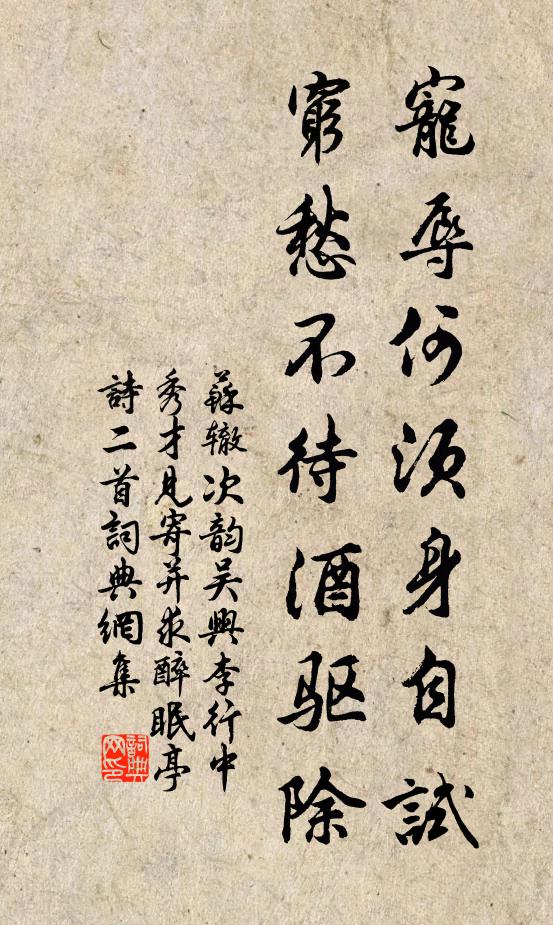 寵辱何須身自試
窮愁不待酒驱除
蘇辙次韵吴興李行中
秀才見寄并求醉眠亭
詩二首詞典網集
詞典
网印